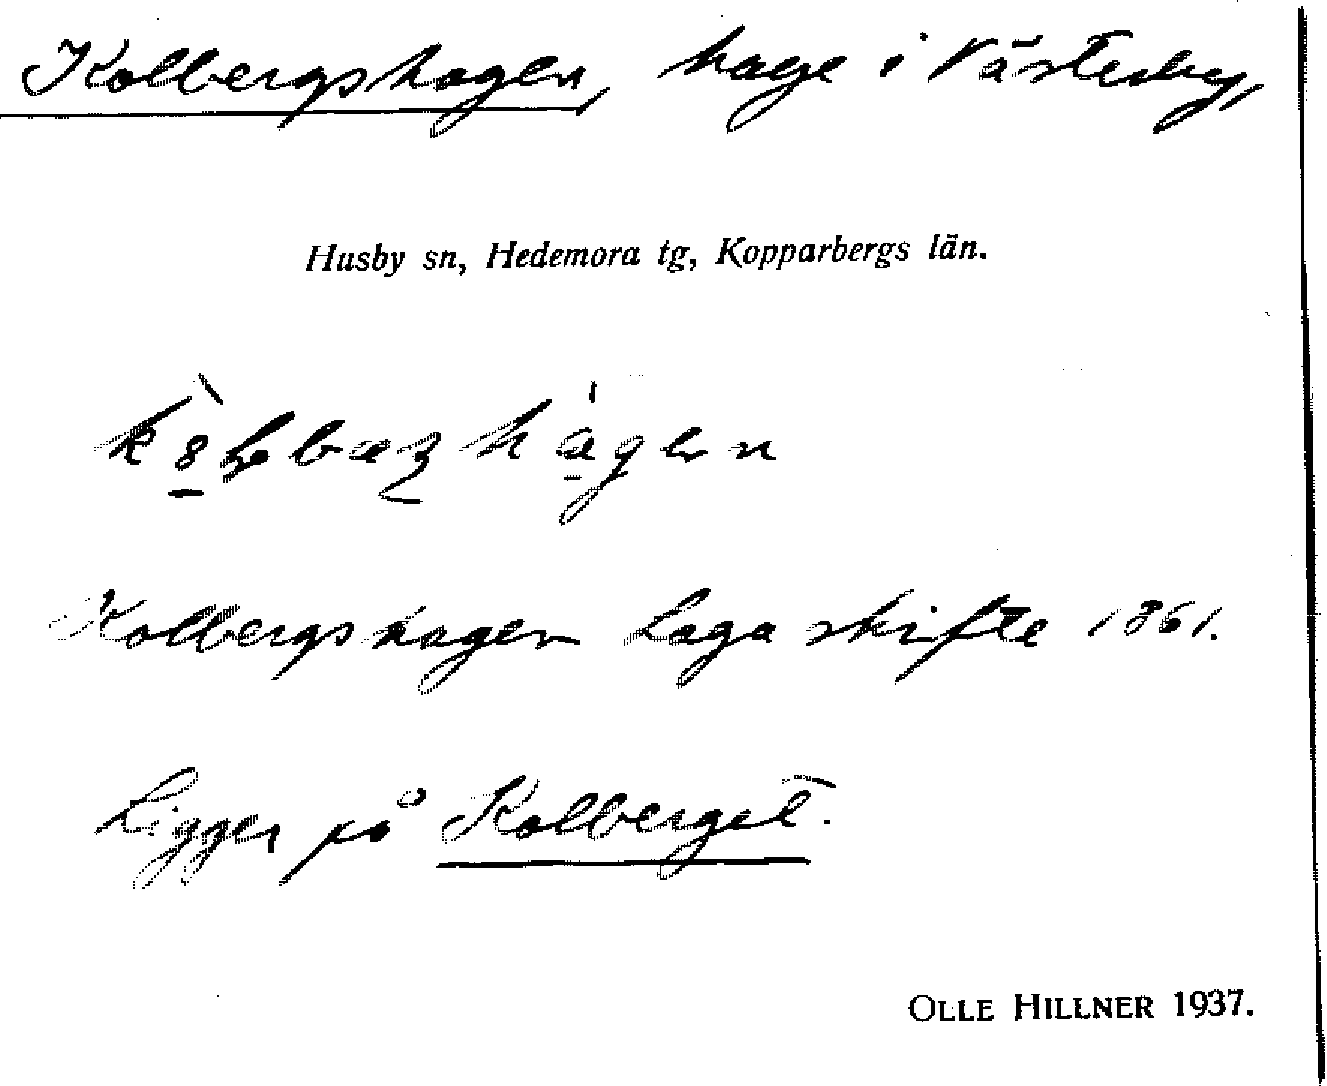 Kolbergshagen, hage i Västerby,
Husby sn, Hedemora tg, Kopparbergs län.
Kolbergshagen Laga skifte 1861.
Ligger på Kolberget.
OLLE HILLNER 1937.